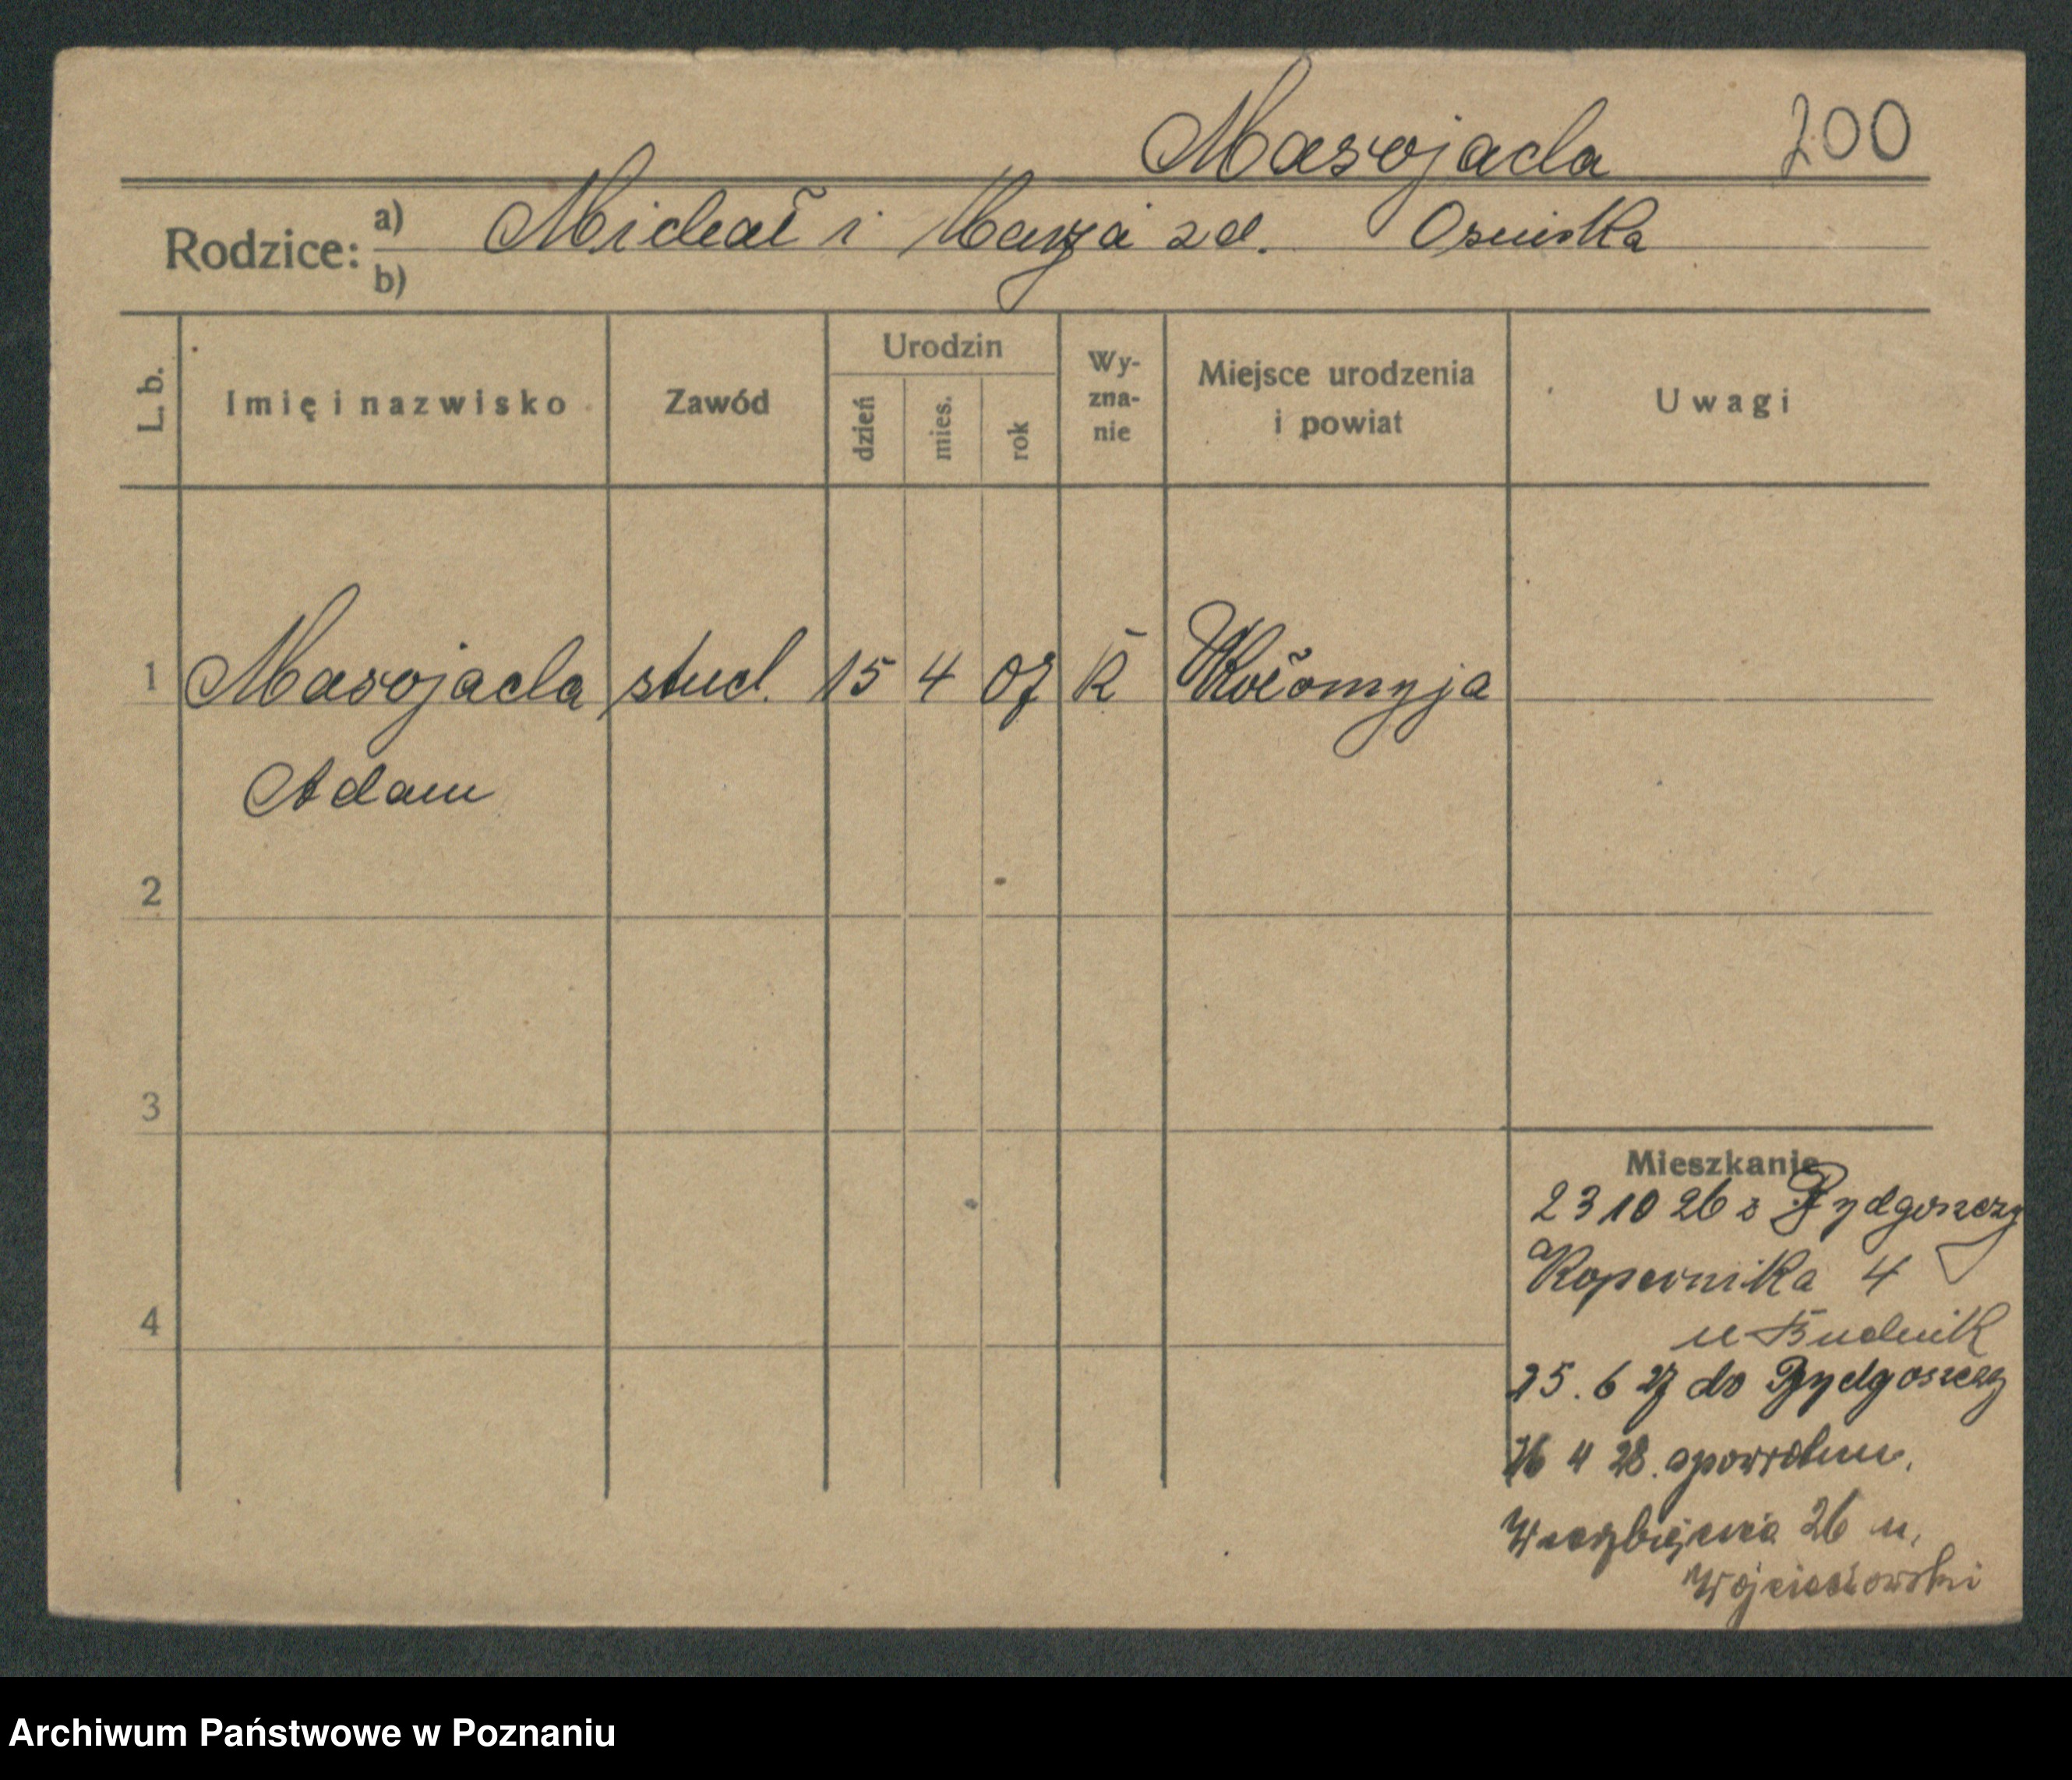 Masojada 200
Rodzice: a) Michał i Marja zd. Osuiska
b)
L. b. Imię i nazwisko Zawód Urodzin dzień mies. rok Wy-zna-nie Miejsce urodzenia i powiat Uwagi
1 Masojada stud. 15 4 07 K Kołomyja
Adam
2
3
4
Mieszkanie
23 10 26 z Bydgoszczy
Kopernika 4
u Budnik
25. 6 27 do Bydgoszczy
26 4 28. spowrotem.
Wierzbięcice 26 u.
Archiwum Państwowe w Poznaniu